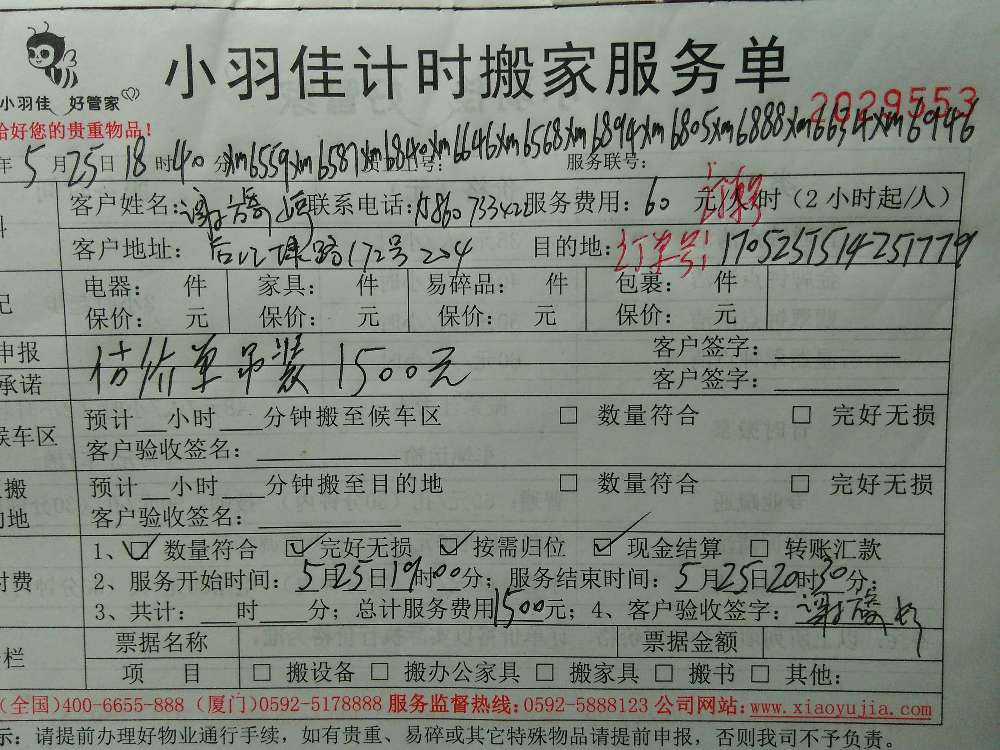 小羽佳计时搬家服务单
小羽佳 好管家
2029553
恰好您的贵重物品！
年5月25日18时40分 xm6559 xm6587 xm6840 xm6646 xm6568 xm6894 xm6805 xm6888 xm6634 xm6946
服务联号：
客户姓名：谢 联系电话： 服务费用：60元/ 时（2小时起/人）
客户地址： 路172号204 目的地：订单号：1705251514251779
电器： 件 家具： 件 易碎品： 件 包裹： 件
保价： 元 保价： 元 保价： 元 保价： 元
申报 估价单吊装1500元 客户签字：
承诺 客户签字：
候车区 预计 小时 分钟搬至候车区 □ 数量符合 □ 完好无损
客户验收签名：
搬 预计 小时 分钟搬至目的地 □ 数量符合 □ 完好无损
的地 客户验收签名：
1、☑ 数量符合 ☑ 完好无损 ☑ 按需归位 ☑ 现金结算 □ 转账汇款
付费 2、服务开始时间：5月25日19时00分；服务结束时间：5月25日20时30分；
3、共计： 时 分；总计服务费用1500元；4、客户验收签字：谢
栏 票据名称 票据金额
项 目 □ 搬设备 □ 搬办公家具 □ 搬家具 □ 搬书 □ 其他：
(全国)400-6655-888 (厦门)0592-5178888 服务监督热线：0592-5888123 公司网站：www.xiaoyujia.com
示：请提前办理好物业通行手续，如有贵重、易碎或其它特殊物品请提前申报，否则我司不予负责。